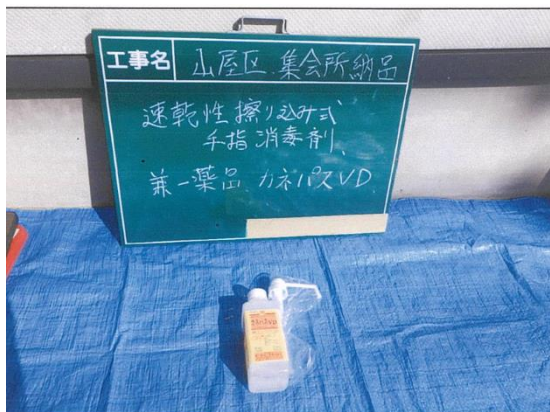 工事名 山屋区.集会所納品
速乾性擦り込み式
手指消毒剤、
兼一薬品 カネパスVD